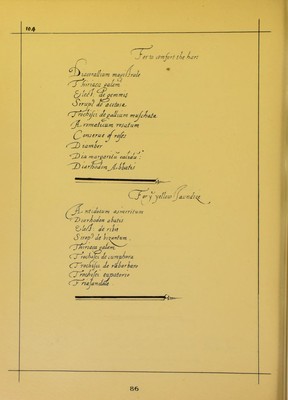 104
For to comfort the hart
Diacorallium magistrale
Thiriaca galem
Elect: de gemmis
Sirup: de acetosa
Trochisci de galliæ muschata
Aromaticum rosatum
Conserva of roses
Diamber
Dia margaritū calidū
Diarthodon Abbatis
For yͤ yellow Jaundise
Antidotum asincritum
Diorrhodon abatis
Elect: de ribes
Sirup: de bizantum
Thiriaca galem
Trochisci de camphora
Trochisci de rubarbaro
Trochisci eupatorio
Triasandale
86